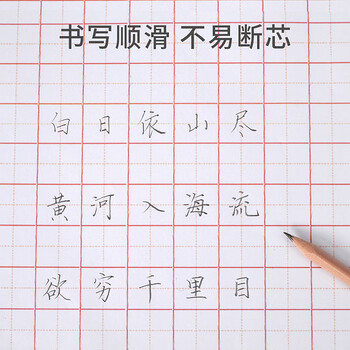 书写顺滑 不易断芯
白日依山尽
黄河入海流
欲穷千里目